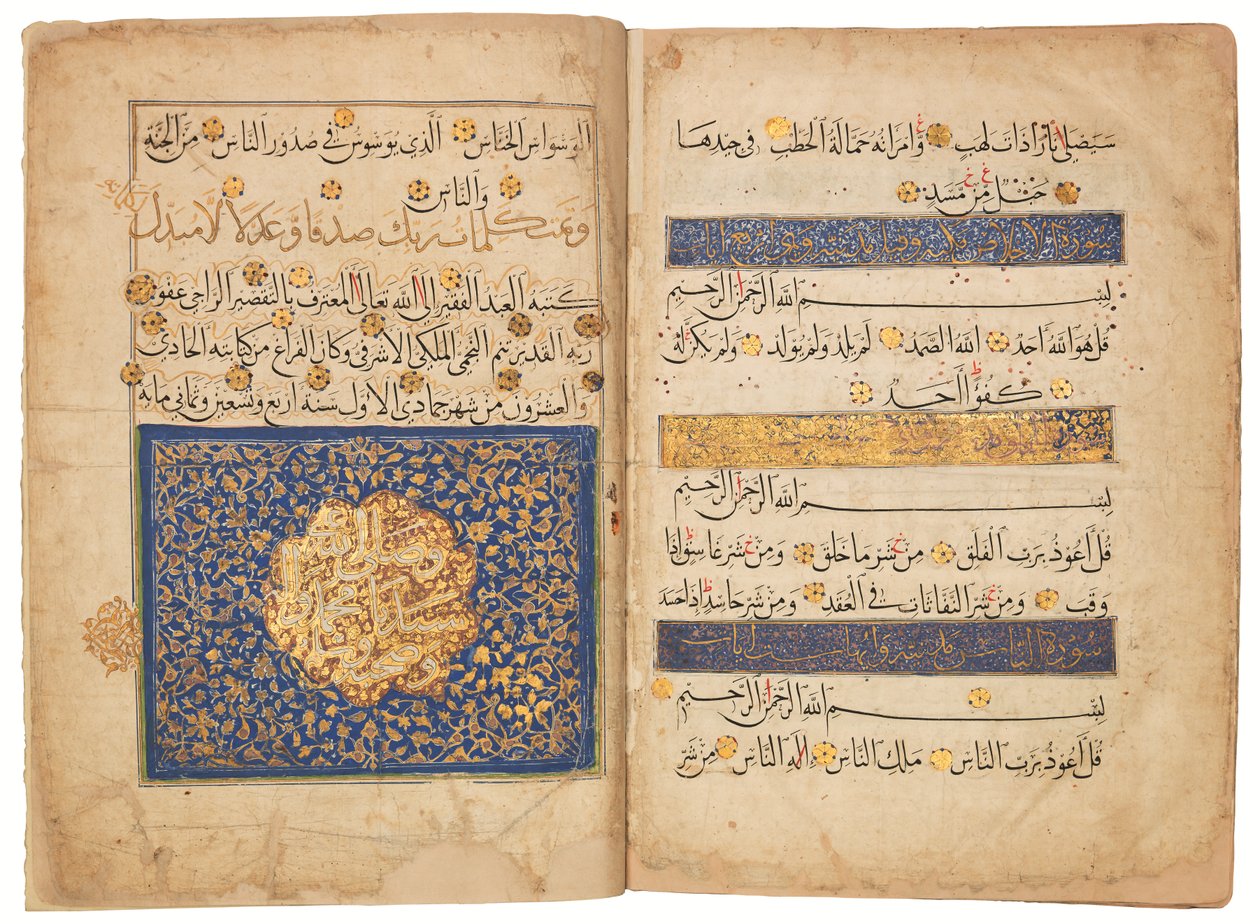 سَيَصْلَى نَارًا ذَاتَ لَهَبٍ وَامْرَأَتُهُ حَمَّالَةُ الْحَطَبِ فِي جِيدِهَا
حَبْلٌ مِنْ مَسَدٍ
سورة الاخلاص مكية وقيل مدنية وهي اربع ايات
بِسْمِ اللهِ الرَّحْمٰنِ الرَّحِيْمِ
قُلْ هُوَ اللهُ أَحَدٌ اللهُ الصَّمَدُ لَمْ يَلِدْ وَلَمْ يُولَدْ وَلَمْ يَكُنْ لَهُ
كُفُوًا أَحَدٌ
بِسْمِ اللهِ الرَّحْمٰنِ الرَّحِيْمِ
قُلْ أَعُوْذُ بِرَبِّ الْفَلَقِ مِنْ شَرِّ مَا خَلَقَ وَمِنْ شَرِّ غَاسِقٍ إِذَا
وَقَبَ وَمِنْ شَرِّ النَّفَّاثَاتِ فِي الْعُقَدِ وَمِنْ شَرِّ حَاسِدٍ إِذَا حَسَدَ
سورة الناس مدنية وايها ست ايات
بِسْمِ اللهِ الرَّحْمٰنِ الرَّحِيْمِ
قُلْ أَعُوْذُ بِرَبِّ النَّاسِ مَلِكِ النَّاسِ إِلٰهِ النَّاسِ مِنْ شَرِّ
الْوَسْوَاسِ الْخَنَّاسِ الَّذِي يُوَسْوِسُ فِي صُدُوْرِ النَّاسِ مِنَ الْجِنَّةِ
وَالنَّاسِ
وَتَمَّتْ كلمات ربك صدقا وَّعدلا لَّا مبدل
لكلماته
كتبه العبد الفقير الى الله تعالى المعترف بالتقصير الراجي عفو
ربه القدير تنم النجمي الملكي الاشرفي وكان الفراغ من كتابته الحادي
والعشرون من شهر جمادي الاول سنة اربع وتسعين وثماني مايه
وصلى الله
سيدنا محمد
وصحبه